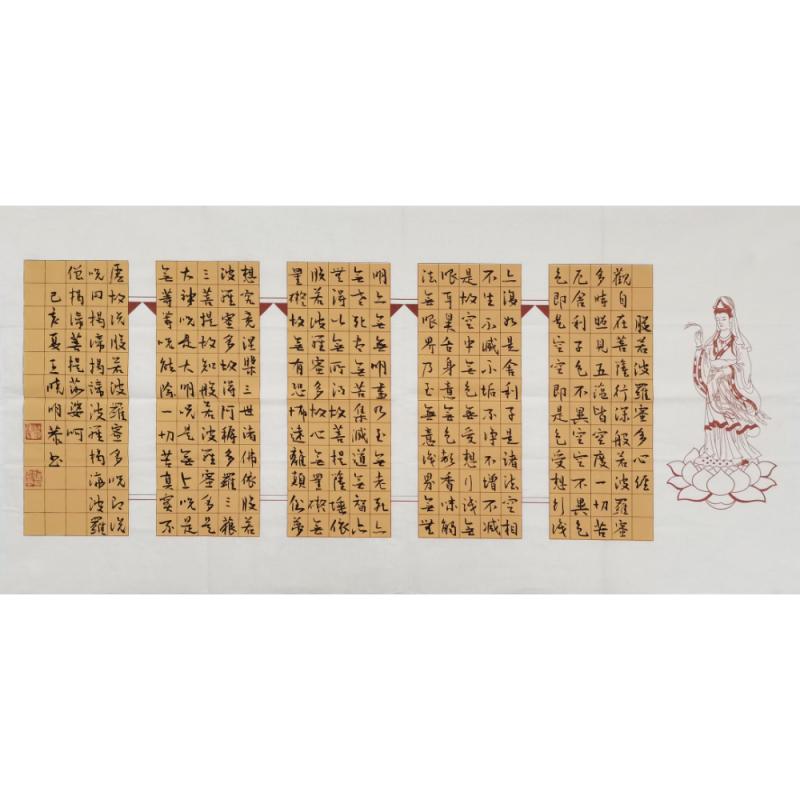 般若波羅蜜多心經
觀自在菩薩行深般若波羅蜜
多時照見五蘊皆空度一切苦
厄舍利子色不異空空不異色
色即是空空即是色受想行識
亦復如是舍利子是諸法空相
不生不滅不垢不淨不增不減
是故空中無色無受想行識無
眼耳鼻舌身意無色聲香味觸
法無眼界乃至無意識界無無
明亦無無明盡乃至無老死亦
無老死盡無苦集滅道無智亦
無得以無所得故菩提薩埵依
般若波羅蜜多故心無罣礙無
罣礙故無有恐怖遠離顛倒夢
想究竟涅槃三世諸佛依般若
波羅蜜多故得阿耨多羅三藐
三菩提故知般若波羅蜜多是
大神呪是大明呪是無上呪是
無等等呪能除一切苦真實不
虛故說般若波羅蜜多呪即說
呪曰揭諦揭諦波羅揭諦波羅
僧揭諦菩提薩婆訶
己亥夏王曉明恭書